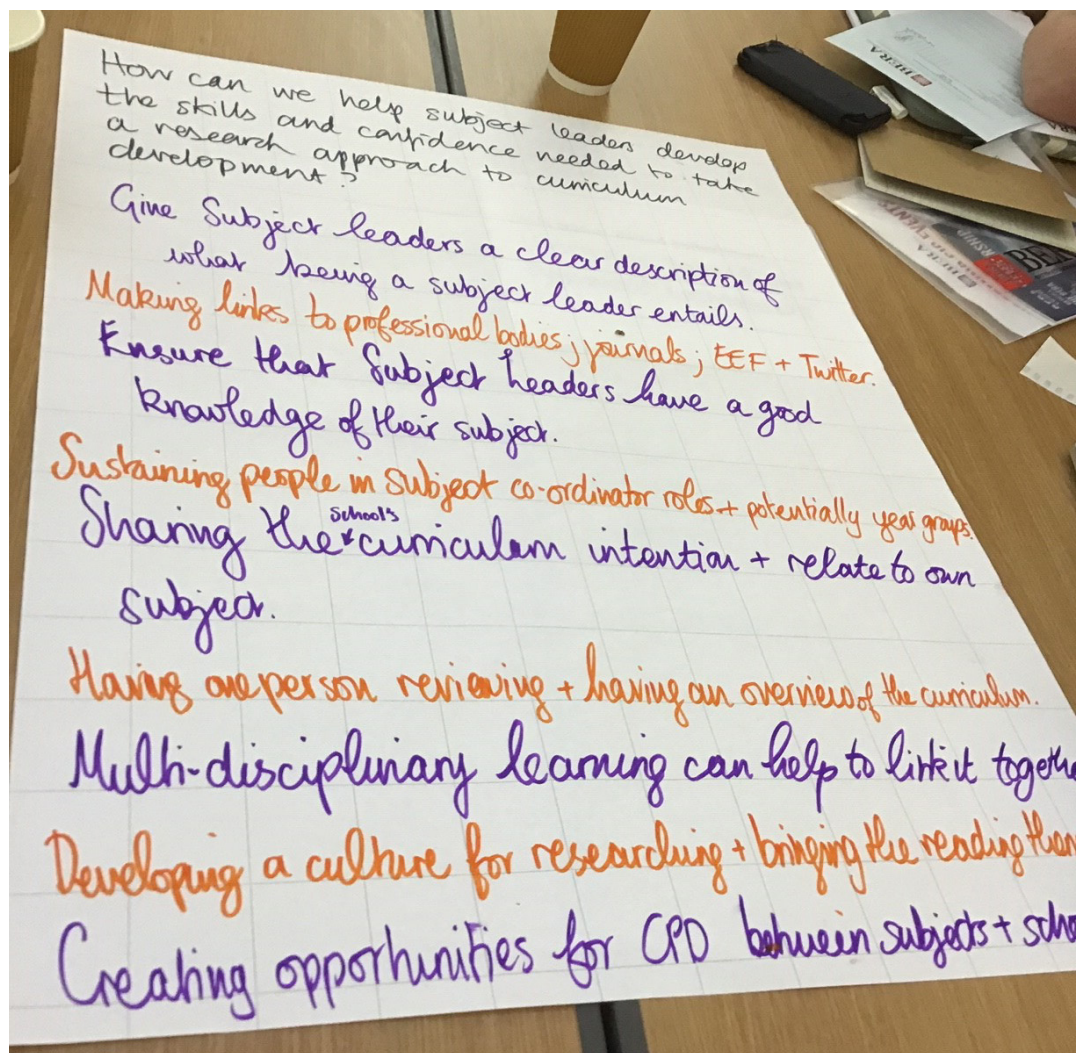 How can we help subject leaders develop
the skills and confidence needed to take
a research approach to curriculum
development?
Give Subject leaders a clear description of
what being a subject leader entails.
Making links to professional bodies; journals; EEF + Twitter.
Ensure that Subject headers have a good
knowledge of their subject.
Sustaining people in subject co-ordinator roles + potentially year groups.
School's
Sharing the curriculum intention + relate to own
subject.
Having one person reviewing + having an overview of the curriculum.
Multi-disciplinary learning can help to link it togethe
Developing a culture for researching + bringing the reading
Creating opportunities for CPD between subjects + scho
BERA
BERA
EVENTS